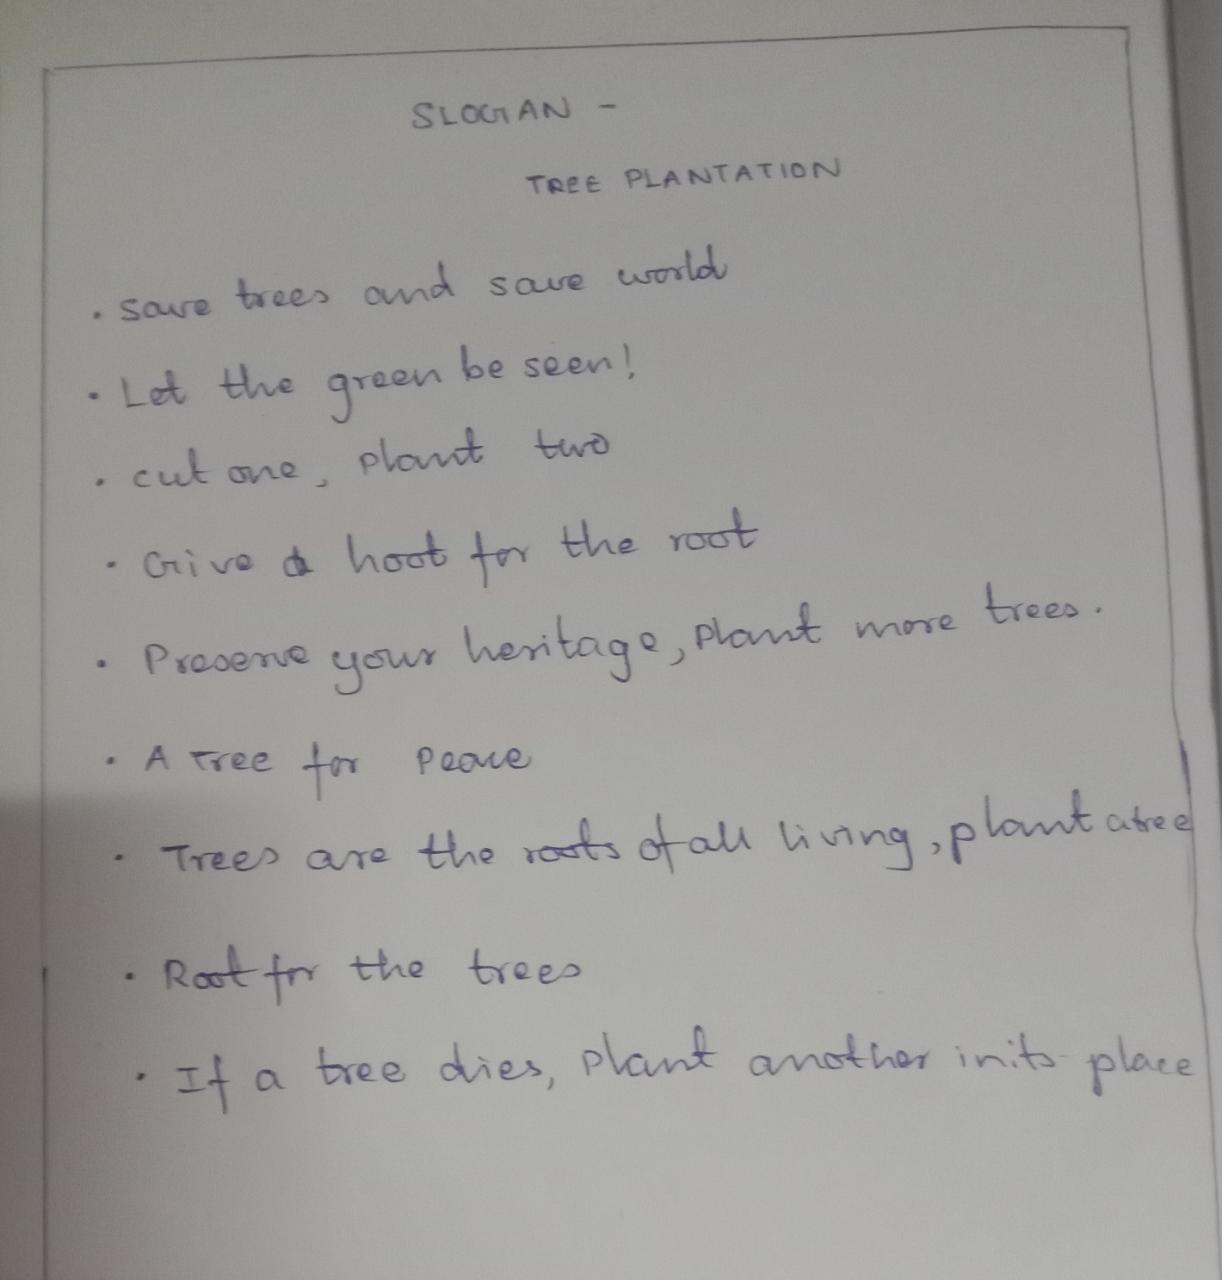 SLOGAN -
TREE PLANTATION
• save trees and save world
• Let the green be seen!
• cut one, plant two
• Give a hoot for the root
• Preserve your heritage, plant more trees.
• A Tree for peace
• Trees are the roots of all living, plant a tree
• Root for the trees
• If a tree dies, plant another in its place